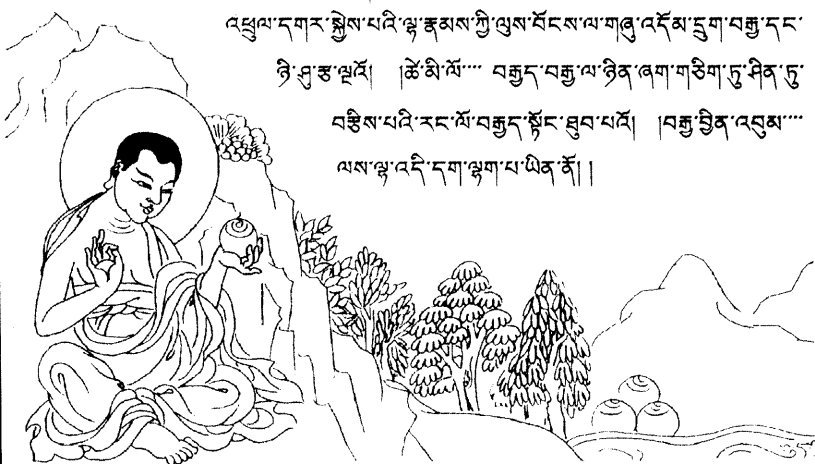 འཕྲུལ་དགར་སྐྱེས་པའི་ལྷ་རྣམས་ཀྱི་ལུས་བོངས་ལ་གཞུ་འདོམ་དྲུག་བརྒྱ་དང་
ཉི་ཤུ་རྩ་ལྔའོ། །ཚེ་མི་ལོ་་་་ བརྒྱད་བརྒྱ་ལ་ཉིན་ཞག་གཅིག་ཏུ་ཤིན་ཏུ་
བརྩིས་པའི་རང་ལོ་བརྒྱད་སྟོང་ཐུབ་པའོ། །བརྒྱ་བྱིན་འབུམ་་་་
ལས་ལྷ་འདི་དག་ལྷག་པ་ཡིན་ནོ།།